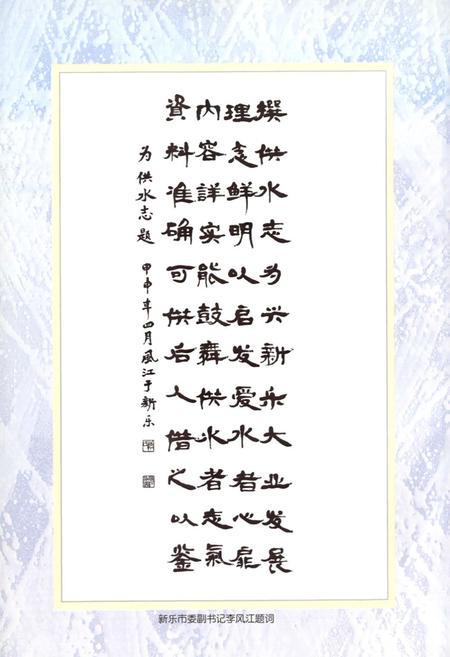 撰供水志为兴新乐大业发展
理念鲜明以启发爱水者心扉
内容詳实能鼓舞供水者志氣
資料准确可供后人借之以鉴
为供水志题 甲申年四月風江于新乐
新乐市委副书记李风江题词